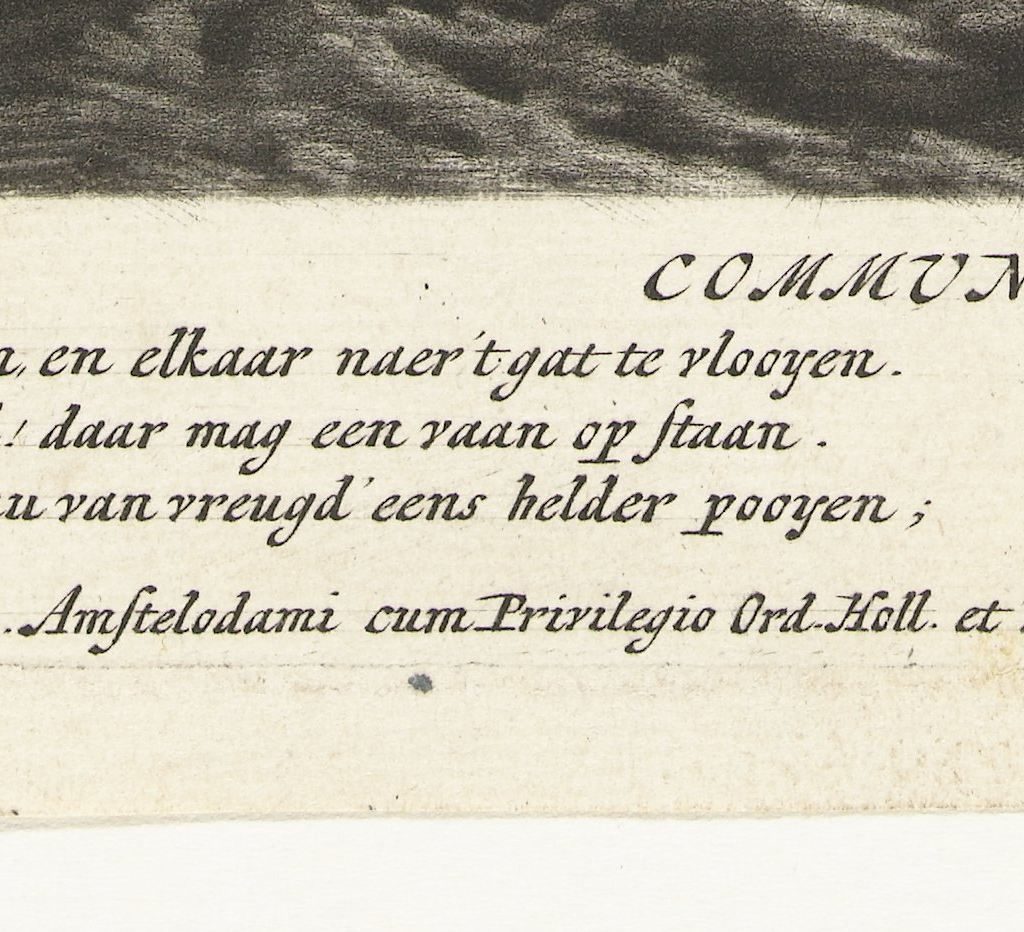 COMMUN
en elkaar naer 't gat te vlooyen.
! daar mag een vaan op ſtaan.
u van vreugd' eens helder pooyen;
Amſtelodami cum Privilegio Ord. Holl. et